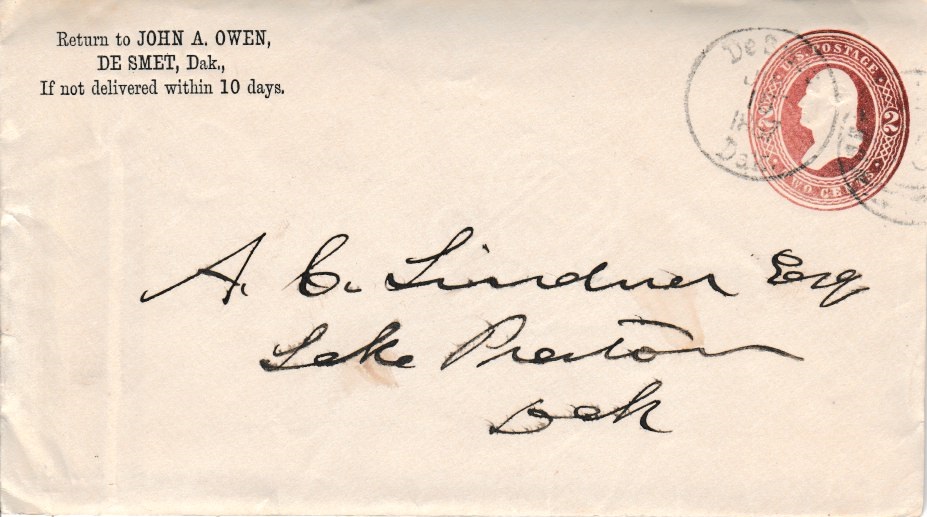 Return to JOHN A. OWEN,
DE SMET, Dak.,
If not delivered within 10 days.
U.S. POSTAGE
2 2
TWO CENTS
De S
Dak.
A. C. Lindner Esq
Lake Preston
Dak